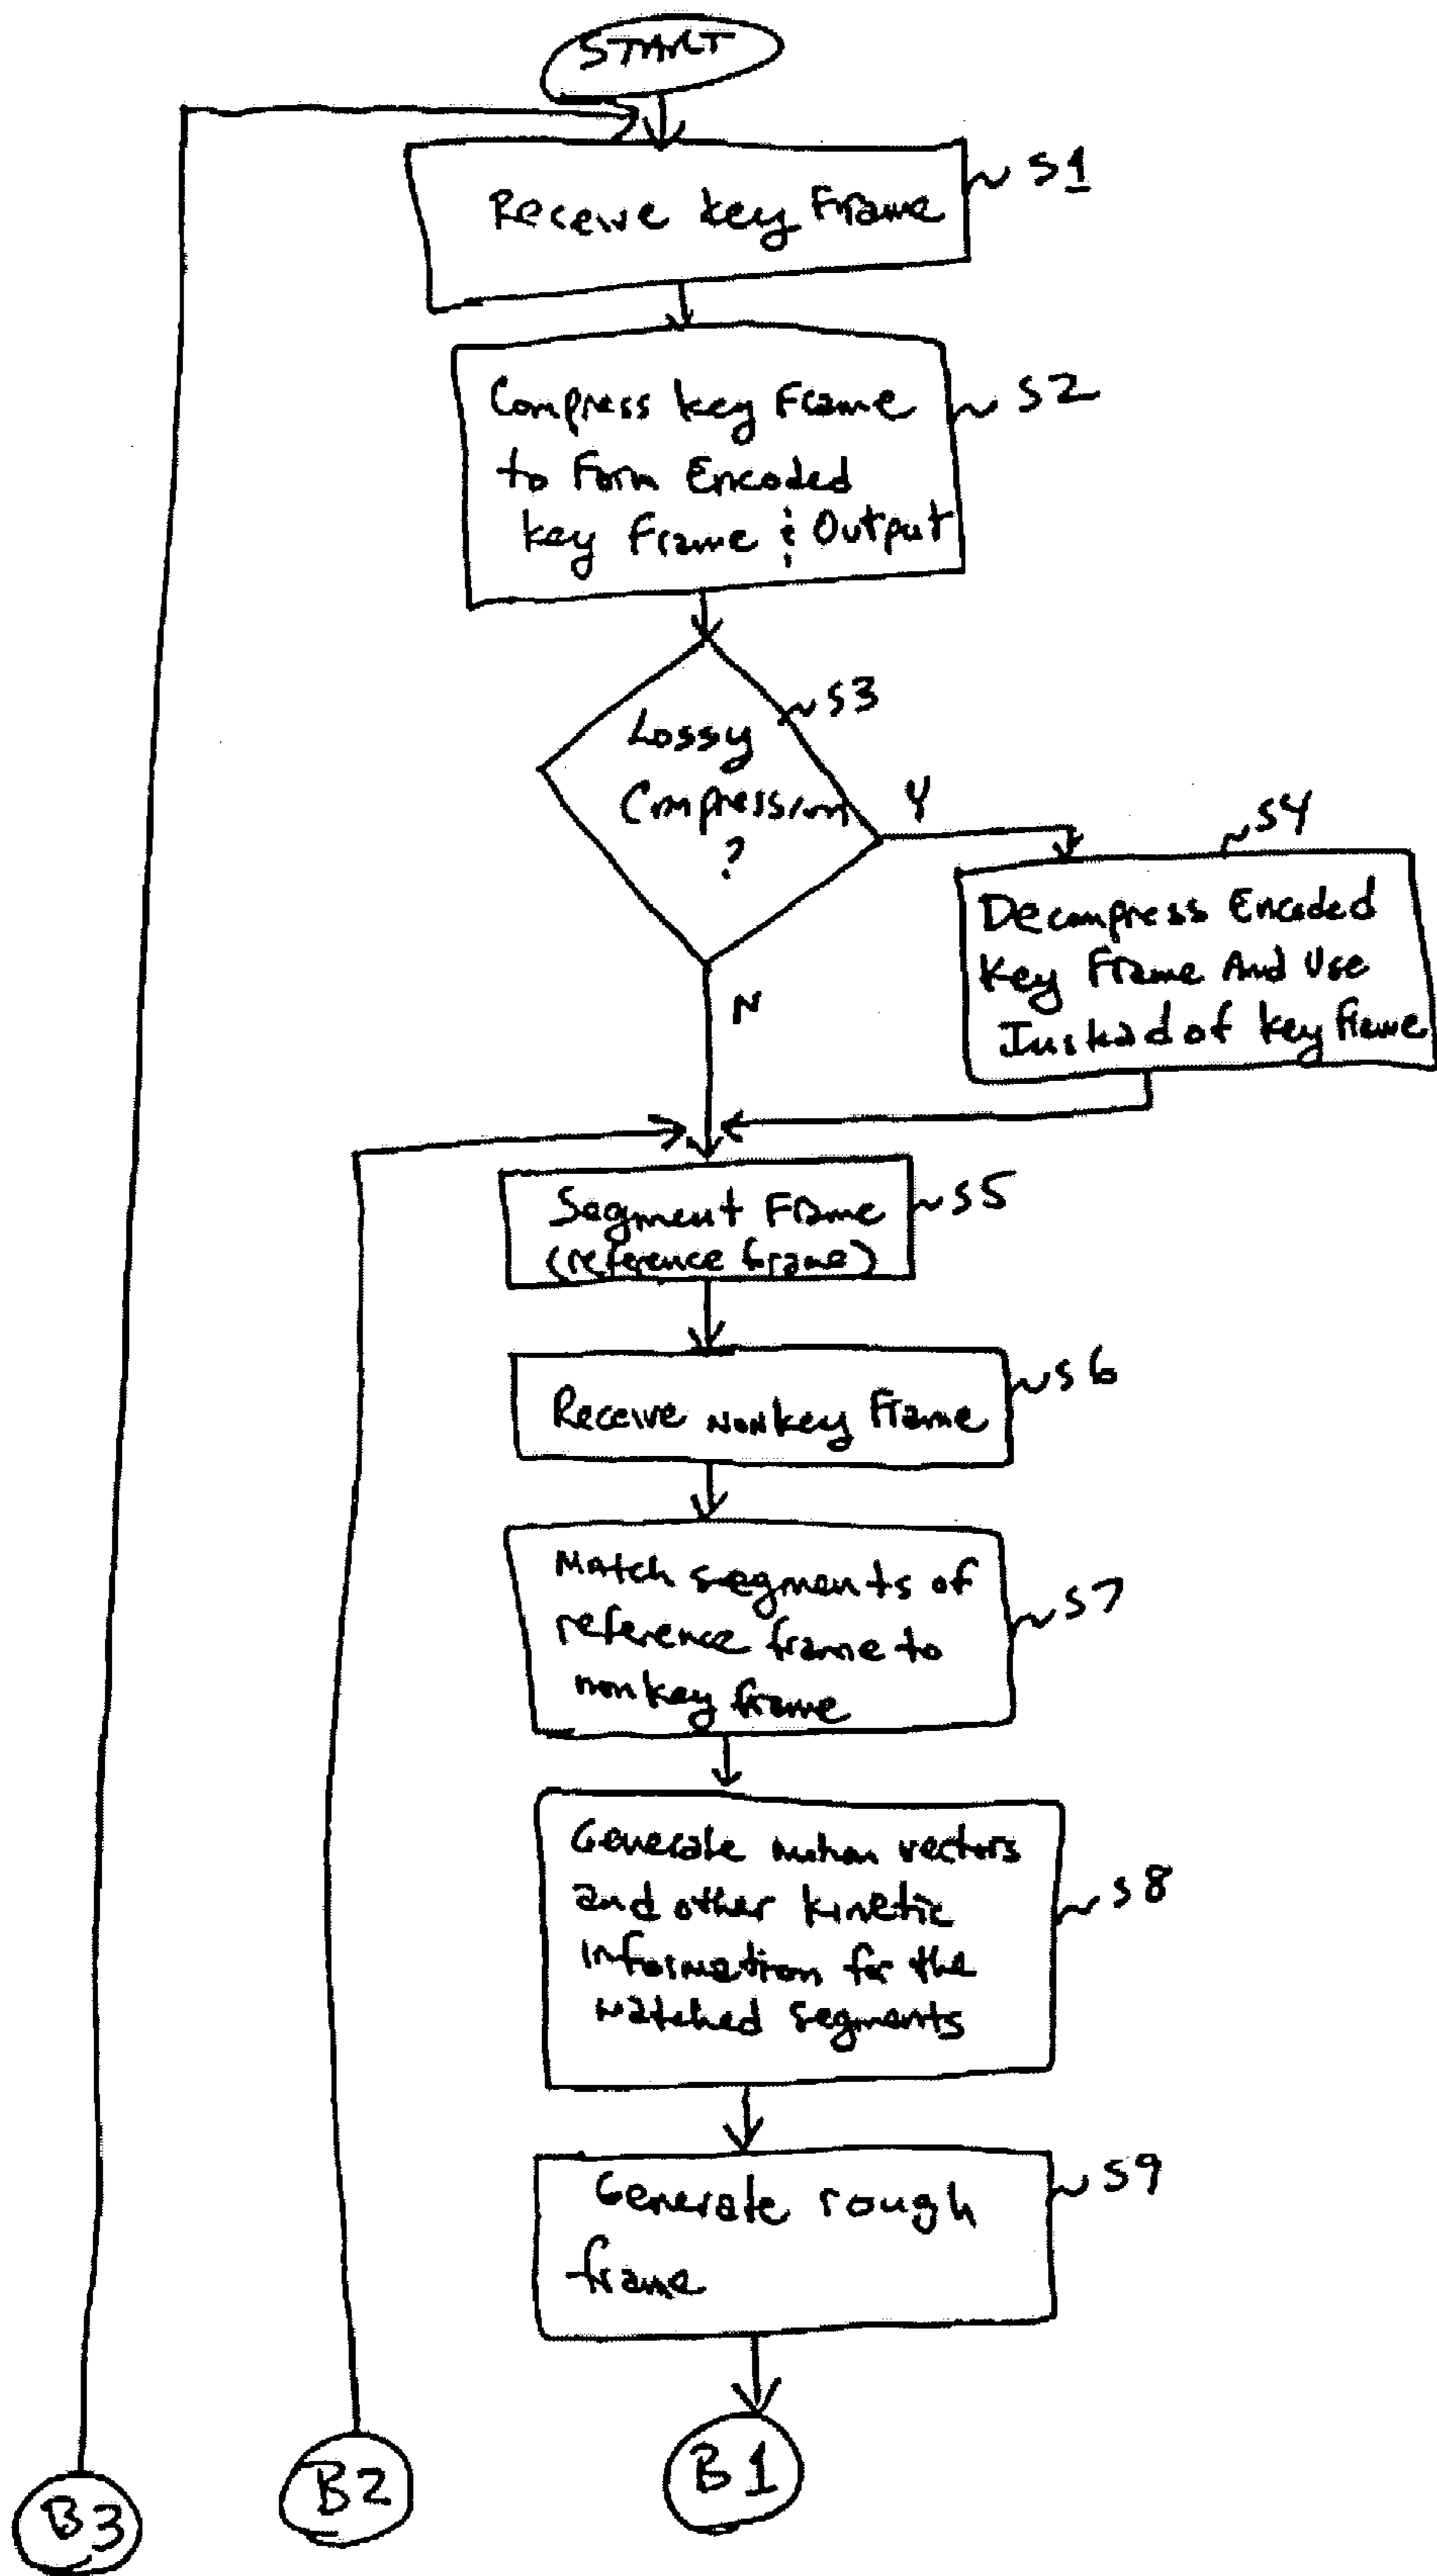 START
Receive key Frame
S1
Compress key Frame
to Form Encoded
key Frame & Output
S2
Lossy
Compression
?
S3
Y
N
Decompress Encoded
Key Frame And Use
Instead of key frame
S4
Segment Frame
(reference frame)
S5
Receive nonkey Frame
S6
Match segments of
reference frame to
nonkey frame
S7
Generate motion vectors
and other kinetic
information for the
matched segments
S8
Generate rough
frame
S9
B3
B2
B1